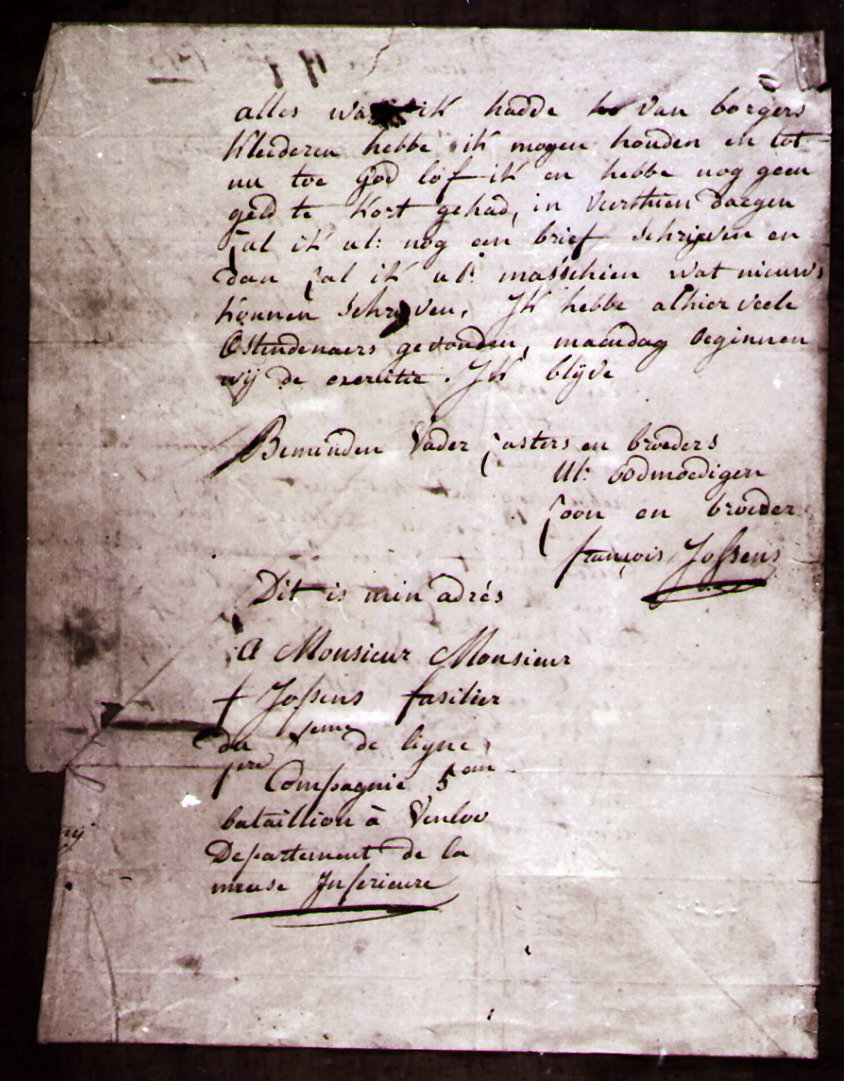 alles wat ik hadde van borgers
kleederen hebbe ik mogen houden en tot
nu toe god lof ik en hebbe nog geen
geld te kort gehad, in veerthien daegen
zal ik ul: nog een brief schrijven en
dan zal ik ul: masschien wat nieuws
konnen schryven, Ik hebbe alhier veele
Ostendenaers gevonden, maendag beginnen
wij de exercitie. Ik blijve
Beminden Vader zusters en broeders
Ul: oodmoedigen
zoon en broeder
françois Jossens
Dit is min adrés
A Monsieur Monsieur
f Jossens fusilier
du eme de ligne
1re Compagnie 5em
bataillion à Venloo
Departement de la
meuse Inferieure